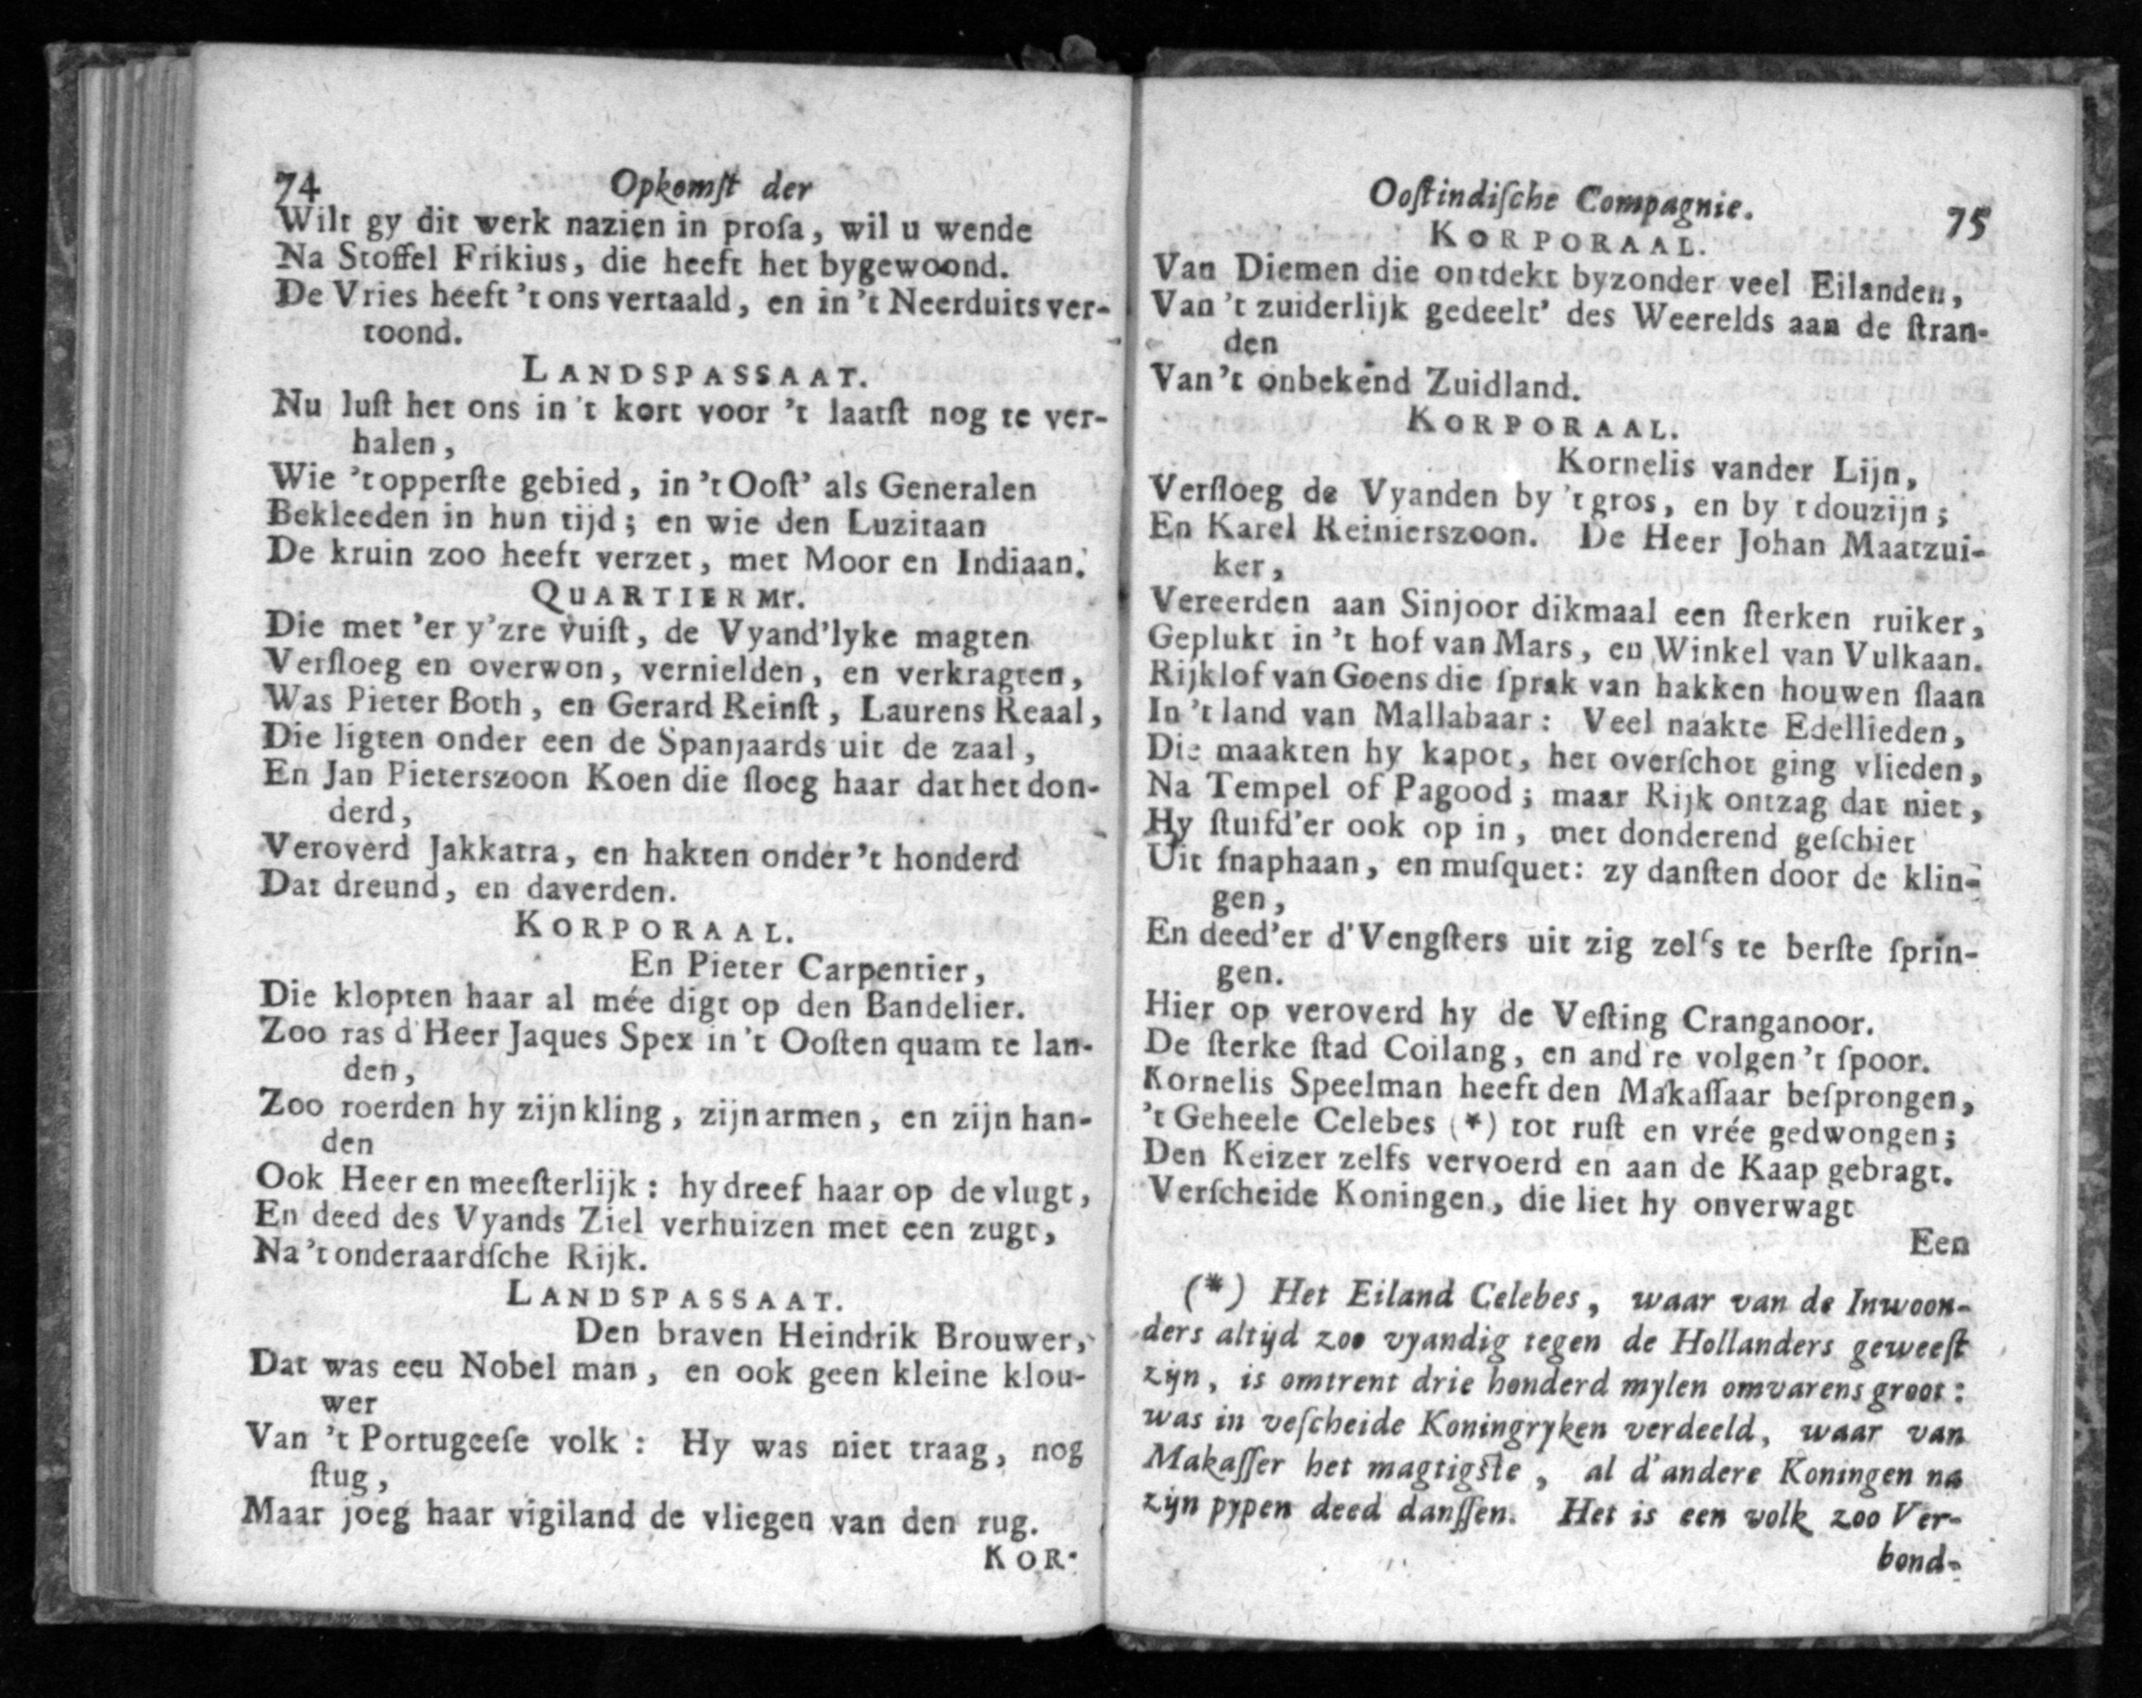 74 Opkomſt der
Wilt gy dit werk nazien in proſa, wil u wende
Na Stoffel Frikius, die heeft het bygewoond.
De Vries heeft 't ons vertaald, en in 't Neerduits ver-
toond.
LANDSPASSAAT.
Nu luſt het ons in 't kort voor 't laatſt nog te ver-
halen,
Wie 't opperſte gebied, in 't Ooſt' als Generalen
Bekleeden in hun tijd; en wie den Luzitaan
De kruin zoo heeft verzet, met Moor en Indiaan.
QUARTIERMr.
Die met 'er y'zre vuiſt, de Vyand'lyke magten
Verſloeg en overwon, vernielden, en verkragten,
Was Pieter Both, en Gerard Reinſt, Laurens Reaal,
Die ligten onder een de Spanjaards uit de zaal,
En Jan Pieterszoon Koen die ſloeg haar dat het don-
derd,
Veroverd Jakkatra, en hakten onder 't honderd
Dat dreund, en daverden.
KORPORAAL.
En Pieter Carpentier,
Die klopten haar al mée digt op den Bandelier.
Zoo ras d'Heer Jaques Spex in 't Ooſten quam te lan-
den,
Zoo roerden hy zijn kling, zijn armen, en zijn han-
den
Ook Heer en meeſterlijk: hy dreef haar op de vlugt,
En deed des Vyands Ziel verhuizen met een zugt,
Na 't onderaardſche Rijk.
LANDSPASSAAT.
Den braven Heindrik Brouwer,
Dat was eeu Nobel man, en ook geen kleine klou-
wer
Van 't Portugeeſe volk: Hy was niet traag, nog
ſtug,
Maar joeg haar vigiland de vliegen van den rug.
KOR-
Ooſtindiſche Compagnie. 75
KORPORAAL.
Van Diemen die ontdekt byzonder veel Eilanden,
Van 't zuiderlijk gedeelt' des Weerelds aan de ſtran-
den
Van 't onbekend Zuidland.
KORPORAAL.
Kornelis vander Lijn,
Verſloeg de Vyanden by 't gros, en by t douzijn;
En Karel Reinierszoon. De Heer Johan Maatzui-
ker,
Vereerden aan Sinjoor dikmaal een ſterken ruiker,
Geplukt in 't hof van Mars, en Winkel van Vulkaan.
Rijklof van Goens die ſprak van hakken houwen ſlaan
In 't land van Mallabaar: Veel naakte Edellieden,
Die maakten hy kapot, het overſchot ging vlieden,
Na Tempel of Pagood; maar Rijk ontzag dat niet,
Hy ſtuifd'er ook op in, met donderend geſchiet
Uit ſnaphaan, en muſquet: zy danſten door de klin-
gen,
En deed'er d'Vengſters uit zig zelfs te berſte ſprin-
gen.
Hier op veroverd hy de Veſting Cranganoor.
De ſterke ſtad Coilang, en and're volgen 't ſpoor.
Kornelis Speelman heeft den Makaſſaar beſprongen,
't Geheele Celebes (*) tot ruſt en vrée gedwongen;
Den Keizer zelfs vervoerd en aan de Kaap gebragt.
Verſcheide Koningen, die liet hy onverwagt
Een
(*) Het Eiland Celebes, waar van de Inwoon-
ders altijd zoo vyandig tegen de Hollanders geweeſt
zijn, is omtrent drie honderd mylen omvarens groot:
was in veſcheide Koningryken verdeeld, waar van
Makaſſer het magtigſte, al d'andere Koningen na
zijn pypen deed danſſen. Het is een volk zoo Ver-
bond-